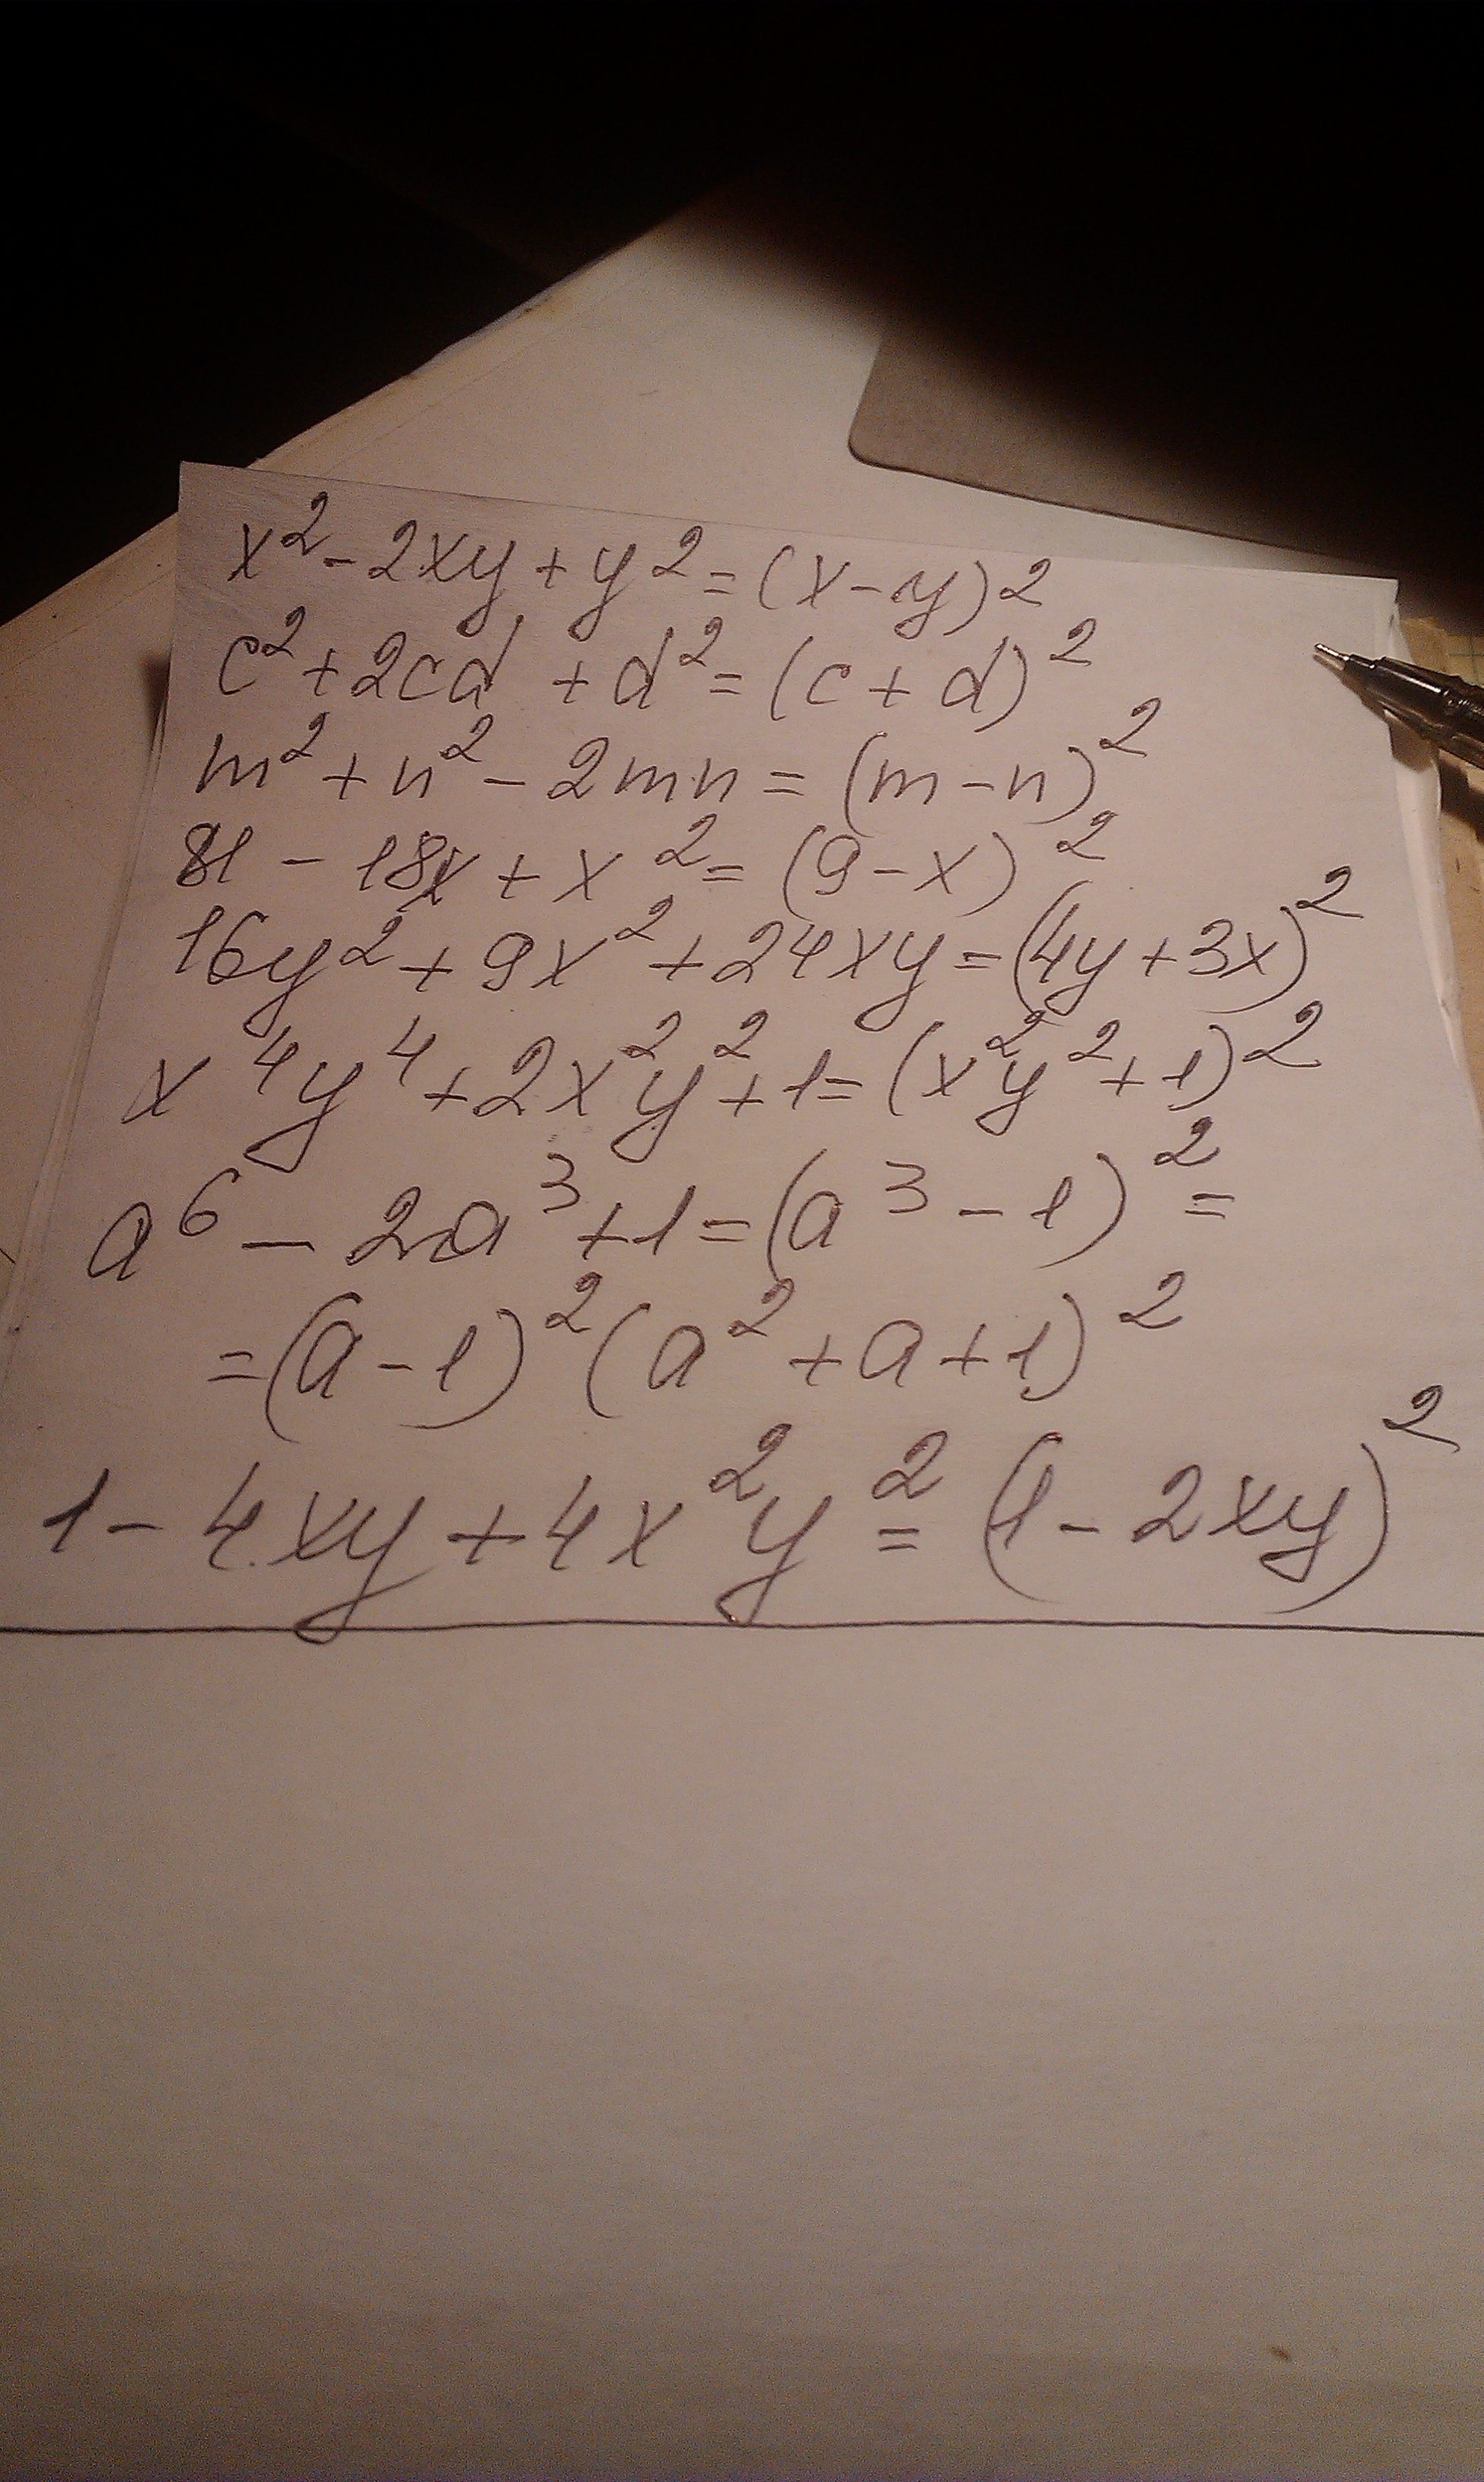 x² - 2xy + y² = (x - y)²
c² + 2cd + d² = (c + d)²
m² + n² - 2mn = (m - n)²
81 - 18x + x² = (9 - x)²
16y² + 9x² + 24xy = (4y + 3x)²
x⁴y⁴ + 2x²y² + 1 = (x²y² + 1)²
a⁶ - 2a³ + 1 = (a³ - 1)² =
= (a - 1)² (a² + a + 1)²
1 - 4xy + 4x²y² = (1 - 2xy)²